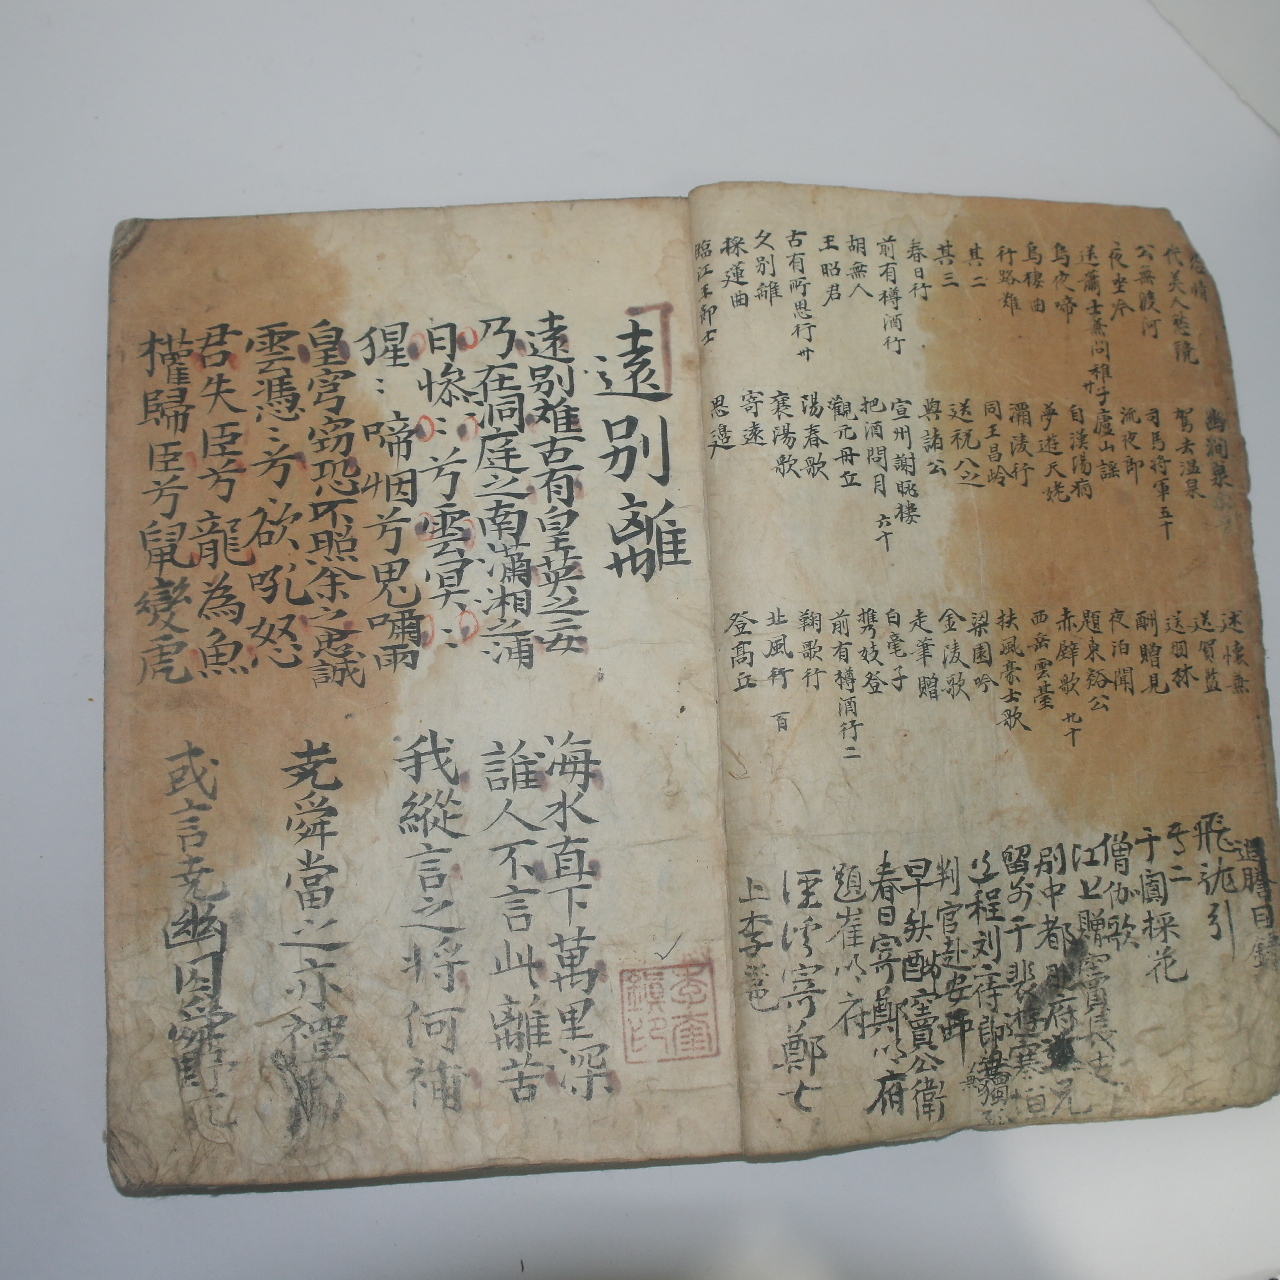 怨情
代美人愁鏡
公無渡河
夜坐吟
送蕭士蕪問稚子 廿
烏夜啼
烏棲曲
行路難
其二
其三
春日行
前有樽酒行
胡無人
王昭君
古有所思行 卅
久别離
採蓮曲
臨江王節士
幽澗泉
駕去溫泉
司馬將軍 五十
流夜郎
廬山謡
自漢陽病
夢遊天姥
灞陵行
同王昌岭
送祝八之
與諸公
宣州謝眺樓
把酒問月 六十
觀元丹丘
陽春歌
襄陽歌
寄遠
思邉
述懷兼
送賀監
送羽林
酬贈見
夜泊聞
題東谿公
赤壁歌 九十
西岳雲䑓
扶風豪士歌
梁園吟
金陵歌
走筆贈
白毫子
携妓登
前有樽酒行二
鞠歌行
北風行 百
登髙丘
追騰目錄
飛龍引
其二
于闐採花
僧伽歌
江上贈竇長史
别中都明府
留别于
判官赴安西
早秋酬竇公衛
春日寄鄭明府
題崔明府
涇溪寄鄭七
上李邕
遠别離
遠别難古有皇英之二女
乃在洞庭之南瀟湘之浦
海水直下萬里深
誰人不言此離苦
日慘〻兮雲冥〻
猩〻啼烟兮鬼嘯雨
我縱言之将何補
皇穹窃恐不照余之忠誠
雲憑〻兮欲吼怒
尭舜當之亦禪禹
君失臣兮龍為魚
權歸臣兮鼠變虎
或言尭幽囚舜野死
李奎鎮印